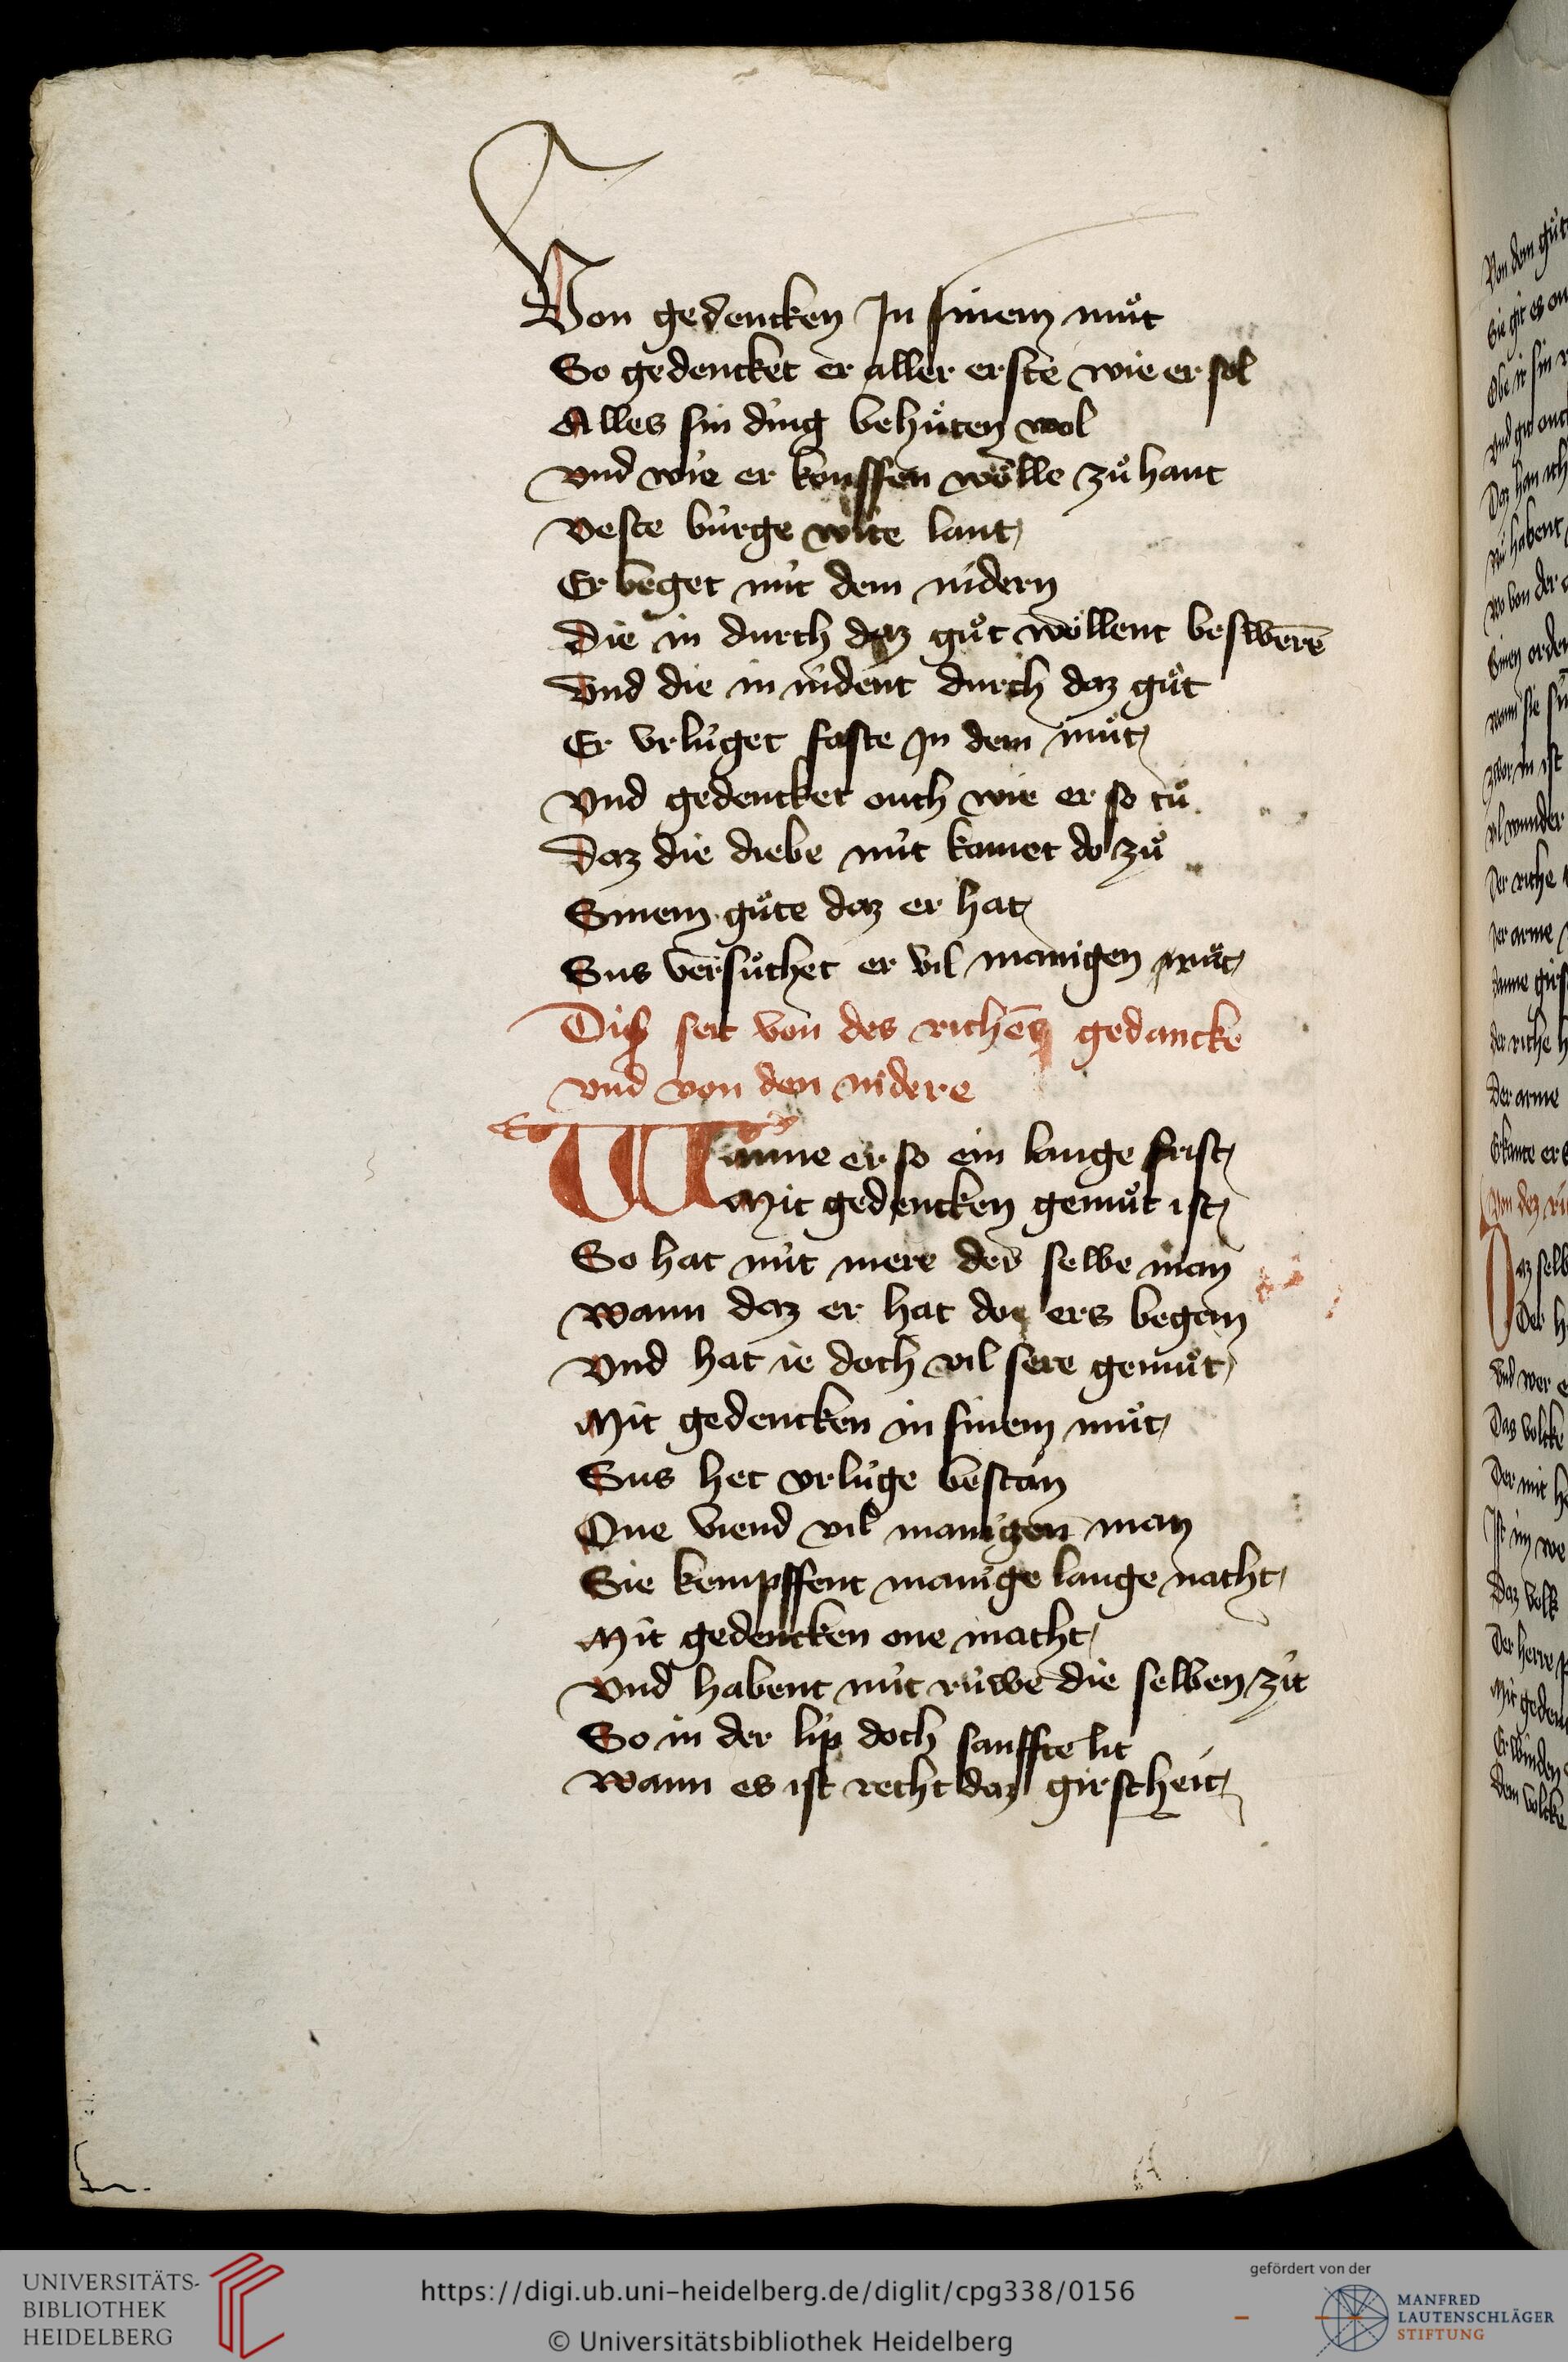 Von gedencken Jn sinem muͦt
So gedencket er aller erste wie er sol
Alles sin ding behuͤten wol
vnd wie er kouffen woͤlle zuͦ hant
veste búrge wite lant
Er beget mit dem nidern
die in durch daz guͦt woͤllent beswerē
vnd die in nident durch daz guͦt
Er vrlúget faste Jn dem muͦt
vnd gedencket ouch wie er so tuͦ
daz die diebe nút komet do zuͦ
Sinem guͦte daz er hat
Sus versuͦchet er vil manigen
Diß seit von des richēs gedancke
vnd von den nidere
Wanne er so ein lange frist
Mit gedencken gemuͤt ist
So hat nút mere der selbe man
wann daz er hat do ers began
vnd hat ie doch vil sere gemuͤt
Mit gedencken in sinem muͦt
Sus het vrlúge bestan
One viend vil manigen man
Sie kempffent manige lange nacht
Mit gedencken one macht
vnd habent nút ruͦwe die selben zit
So in der lip doch sanffte lit
wann es ist recht daz girscheit
Von dem guͦt
Das volcke
Der arme
UNIVERSITÄTS-
BIBLIOTHEK
HEIDELBERG
https://digi.ub.uni-heidelberg.de/diglit/cpg338/0156
© Universitätsbibliothek Heidelberg
gefördert von der
MANFRED
LAUTENSCHLÄGER
STIFTUNG